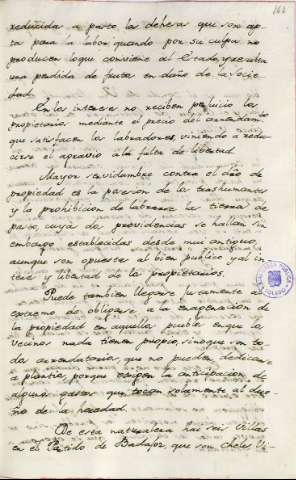 161
reducida a pasto la dehesa que son ap-
ta para la labor; quando por su culpa no
producen lo que conviene al Estado, y resulta
una perdida de frutos en daño de la Socie-
dad.
En las tasas no reciben perjuicio los
propietarios mediante el precio del arrendamto
que satisfacen los labradores, viniendo a redu-
cirse el agravio a la falta de libertad.
Mayor servidumbre contra el año de
propiedad es la posesion de los trashumantes
y la prohibicion de labrarse las tierras de
pasto, cuyas dos providencias se hallan sin
embargo establecidas desde muy antiguo,
aunque son opuestas al bien publico y al in-
teres y libertad de los propietarios.
Puede tambien llegarse justamente al
extremo de obligarse a la enagenacion de
la propiedad en aquellos pueblos en que los
vecinos nada tienen propio, sino que son to-
dos arrendatarios, que no pueden dedicarse
a plantios, porque exigen la anticipacion de
algunos gastos que tocan solamente al due-
ño de la heredad.
De esta naturaleza hai seis Villas
en el Partido de Badajoz, que son Cheles, Vi-